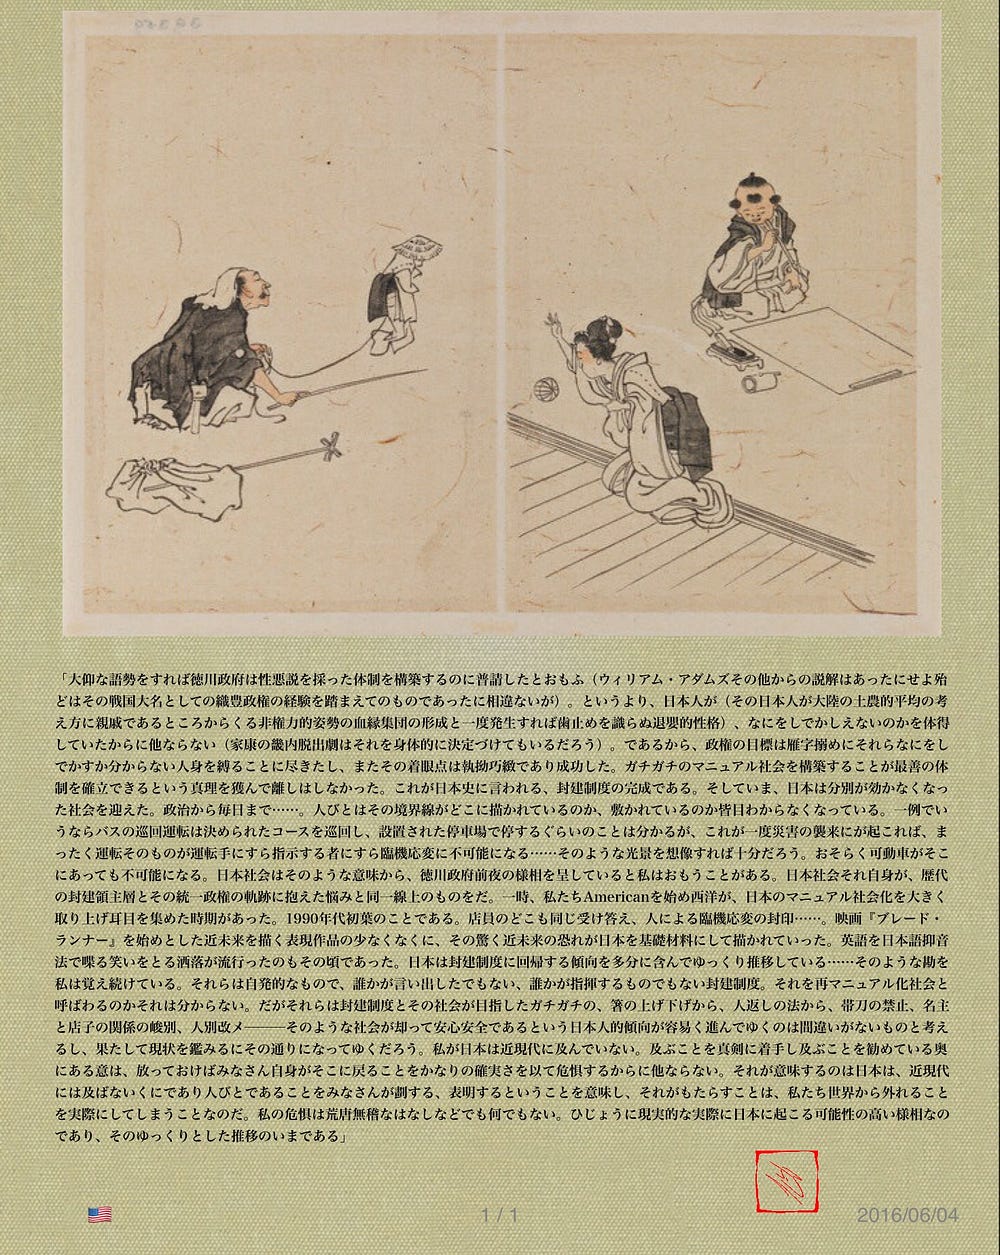 「大仰な語勢をすれば徳川政府は性悪説を採った体制を構築するのに普請したとおもふ（ウィリアム・アダムズその他からの説解はあったにせよ殆
どはその戦国大名としての織豊政権の経験を踏まえてのものであったに相違ないが）。というより、日本人が（その日本人が大陸の土農的平均の考
え方に親戚であるところからくる非権力的姿勢の血縁集団の形成と一度発生すれば歯止めを識らぬ退嬰的性格）、なにをしでかしえないのかを体得
していたからに他ならない（家康の畿内脱出劇はそれを身体的に決定づけてもいるだろう）。であるから、政権の目標は雁字搦めにそれらなにをし
でかすか分からない人身を縛ることに尽きたし、またその着眼点は執拗巧緻であり成功した。ガチガチのマニュアル社会を構築することが最善の体
制を確立できるという真理を獲んで離しはしなかった。これが日本史に言われる、封建制度の完成である。そしていま、日本は分別が効かなくなっ
た社会を迎えた。政治から毎日まで……。人びとはその境界線がどこに描かれているのか、敷かれているのか皆目わからなくなっている。一例でい
うならバスの巡回運転は決められたコースを巡回し、設置された停車場で停するぐらいのことは分かるが、これが一度災害の襲来にが起これば、ま
ったく運転そのものが運転手にすら指示する者にすら臨機応変に不可能になる……そのような光景を想像すれば十分だろう。おそらく可動車がそこ
にあっても不可能になる。日本社会はそのような意味から、徳川政府前夜の様相を呈していると私はおもうことがある。日本社会それ自身が、歴代
の封建領主層とその統一政権の軌跡に抱えた悩みと同一線上のものをだ。一時、私たちAmericanを始め西洋が、日本のマニュアル社会化を大きく
取り上げ耳目を集めた時期があった。1990年代初葉のことである。店員のどこも同じ受け答え、人による臨機応変の封印……。映画『ブレード・
ランナー』を始めとした近未来を描く表現作品の少なくなくに、その驚く近未来の恐れが日本を基礎材料にして描かれていった。英語を日本語抑音
法で喋る笑いをとる洒落が流行ったのもその頃であった。日本は封建制度に回帰する傾向を多分に含んでゆっくり推移している……そのような勘を
私は覚え続けている。それらは自発的なもので、誰かが言い出したでもない、誰かが指揮するものでもない封建制度。それを再マニュアル化社会と
呼ばわるのかそれは分からない。だがそれらは封建制度とその社会が目指したガチガチの、箸の上げ下げから、人返しの法から、帯刀の禁止、名主
と店子の関係の峻別、人別改メ―――そのような社会が却って安心安全であるという日本人的傾向が容易く進んでゆくのは間違いがないものと考え
るし、果たして現状を鑑みるにその通りになってゆくだろう。私が日本は近現代に及んでいない。及ぶことを真剣に着手し及ぶことを勧めている奥
にある意は、放っておけばみなさん自身がそこに戻ることをかなりの確実さを以て危惧するからに他ならない。それが意味するのは日本は、近現代
には及ばないくにであり人びとであることをみなさんが劃する、表明するということを意味し、それがもたらすことは、私たち世界から外れること
を実際にしてしまうことなのだ。私の危惧は荒唐無稽なはなしなどでも何でもない。ひじょうに現実的な実際に日本に起こる可能性の高い様相なの
であり、そのゆっくりとした推移のいまである」
1 / 1
2016/06/04